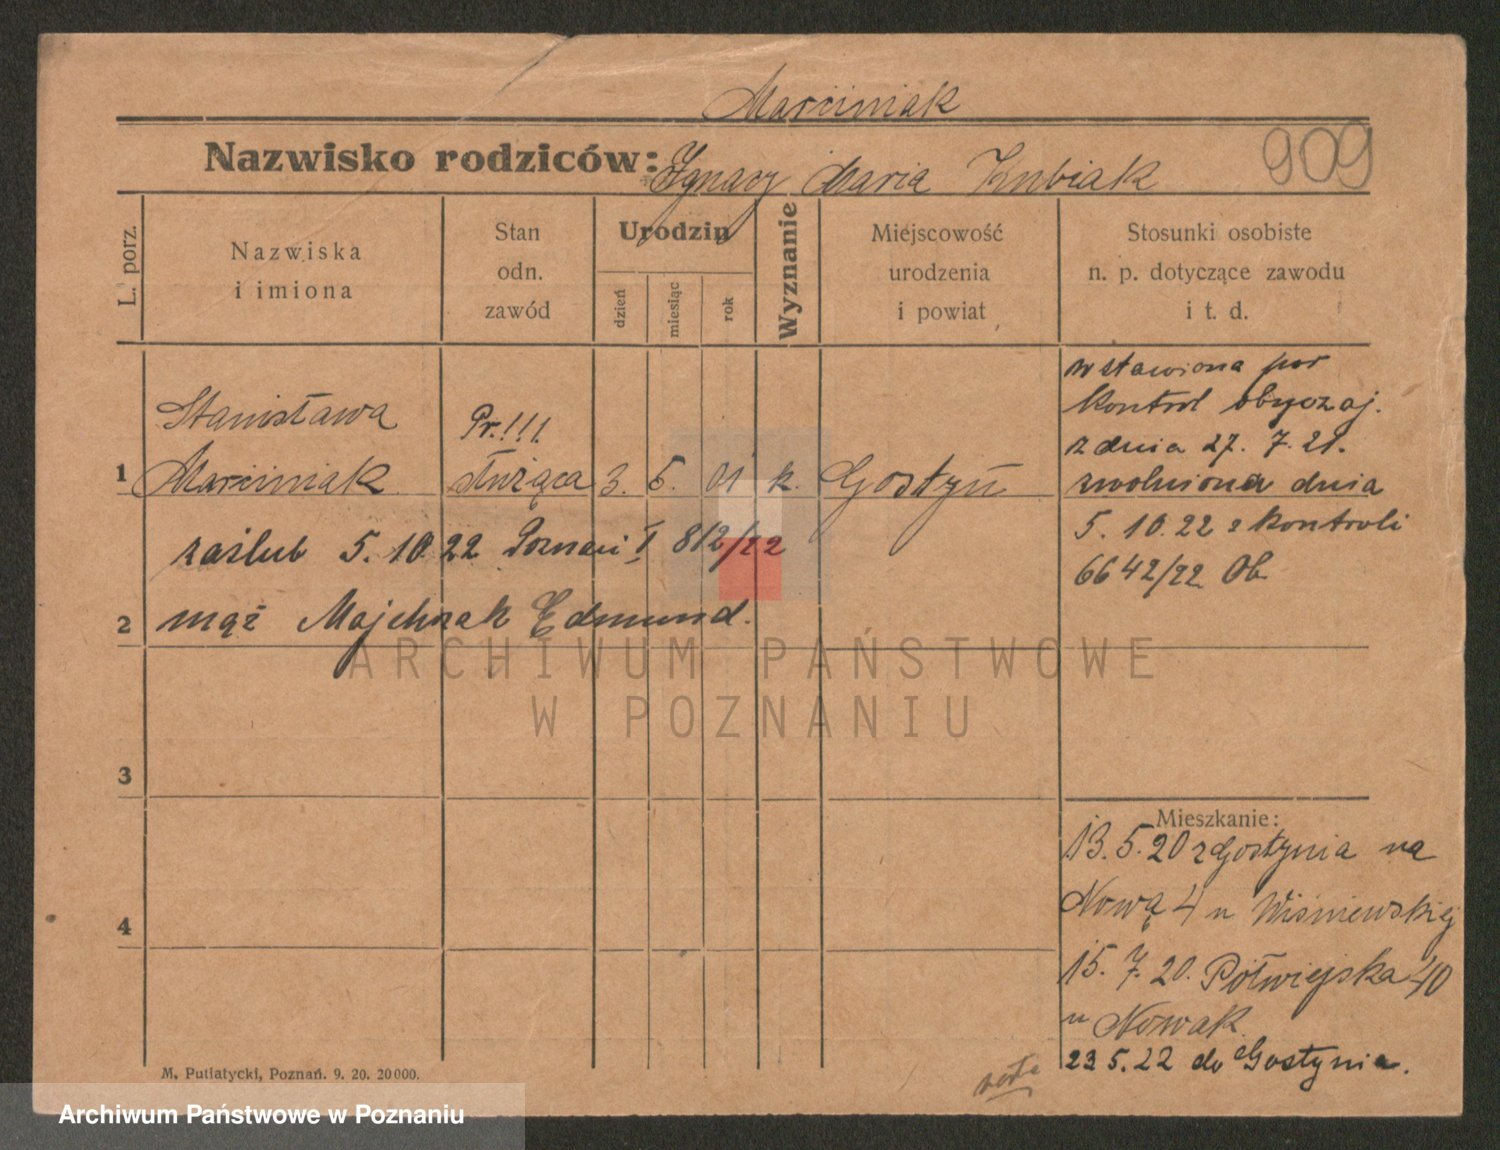 Marciniak
Nazwisko rodziców: Ignacy Maria Kubiak
909
L. porz.
Nazwiska
i imiona
Stan
odn.
zawód
Urodzin
dzień
miesiąc
rok
Wyznanie
Miejscowość
urodzenia
i powiat
Stosunki osobiste
n. p. dotyczące zawodu
i t. d.
Stanisława Pr.!!!
1 Marciniak służąca 3. 5. 01 k. Gostyń
zaślub 5. 10. 22 Poznań I 812/22
2 mąż Majchrzak Edmund.
3
4
wstawiona por
kontrol obyczaj.
z dnia 27. 7. 21.
zwolniona dnia
5. 10. 22 z kontroli
6642/22 Ob
Mieszkanie:
13. 5. 20 z Gostynia na
Nową 4 u Wiśniewskiej
15. 7. 20. Półwiejska 40
u Nowak
23 5. 22 do Gostynia.
M. Putiatycki, Poznań. 9. 20. 20000.
ARCHIWUM PAŃSTWOWE
W POZNANIU
Archiwum Państwowe w Poznaniu